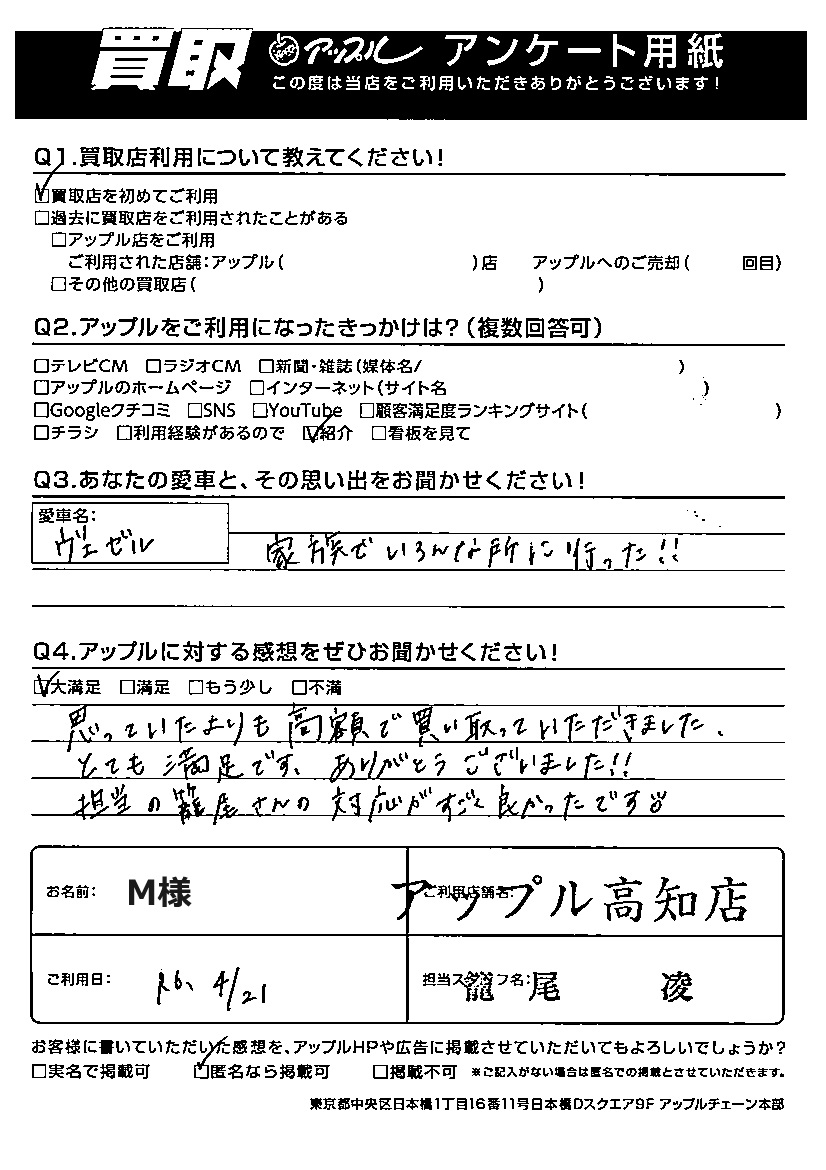 買取 アップル アンケート用紙
この度は当店をご利用いただきありがとうございます!
Q1.買取店利用について教えてください!
☑買取店を初めてご利用
□過去に買取店をご利用されたことがある
□アップル店をご利用
ご利用された店舗:アップル( )店 アップルへのご売却( 回目)
□その他の買取店( )
Q2.アップルをご利用になったきっかけは?(複数回答可)
□テレビCM □ラジオCM □新聞・雑誌(媒体名/ )
□アップルのホームページ □インターネット(サイト名 )
□Googleクチコミ □SNS □YouTube □顧客満足度ランキングサイト( )
□チラシ □利用経験があるので ☑紹介 □看板を見て
Q3.あなたの愛車と、その思い出をお聞かせください!
愛車名:
ヴェゼル 家族でいろんな所に行った!!
Q4.アップルに対する感想をぜひお聞かせください!
☑大満足 □満足 □もう少し □不満
思っていたよりも高額で買い取っていただきました。
とても満足です。ありがとうございました!!
担当の籠尾さんの対応がすごく良かったです
お名前: M様 ご利用店舗名: アップル高知店
ご利用日: R6、4/21 担当スタッフ名: 籠尾 凌
お客様に書いていただいた感想を、アップルHPや広告に掲載させていただいてもよろしいでしょうか?
□実名で掲載可 ☑匿名なら掲載可 □掲載不可 ※ご記入がない場合は匿名での掲載とさせていただきます。
東京都中央区日本橋1丁目16番11号日本橋Dスクエア9F アップルチェーン本部